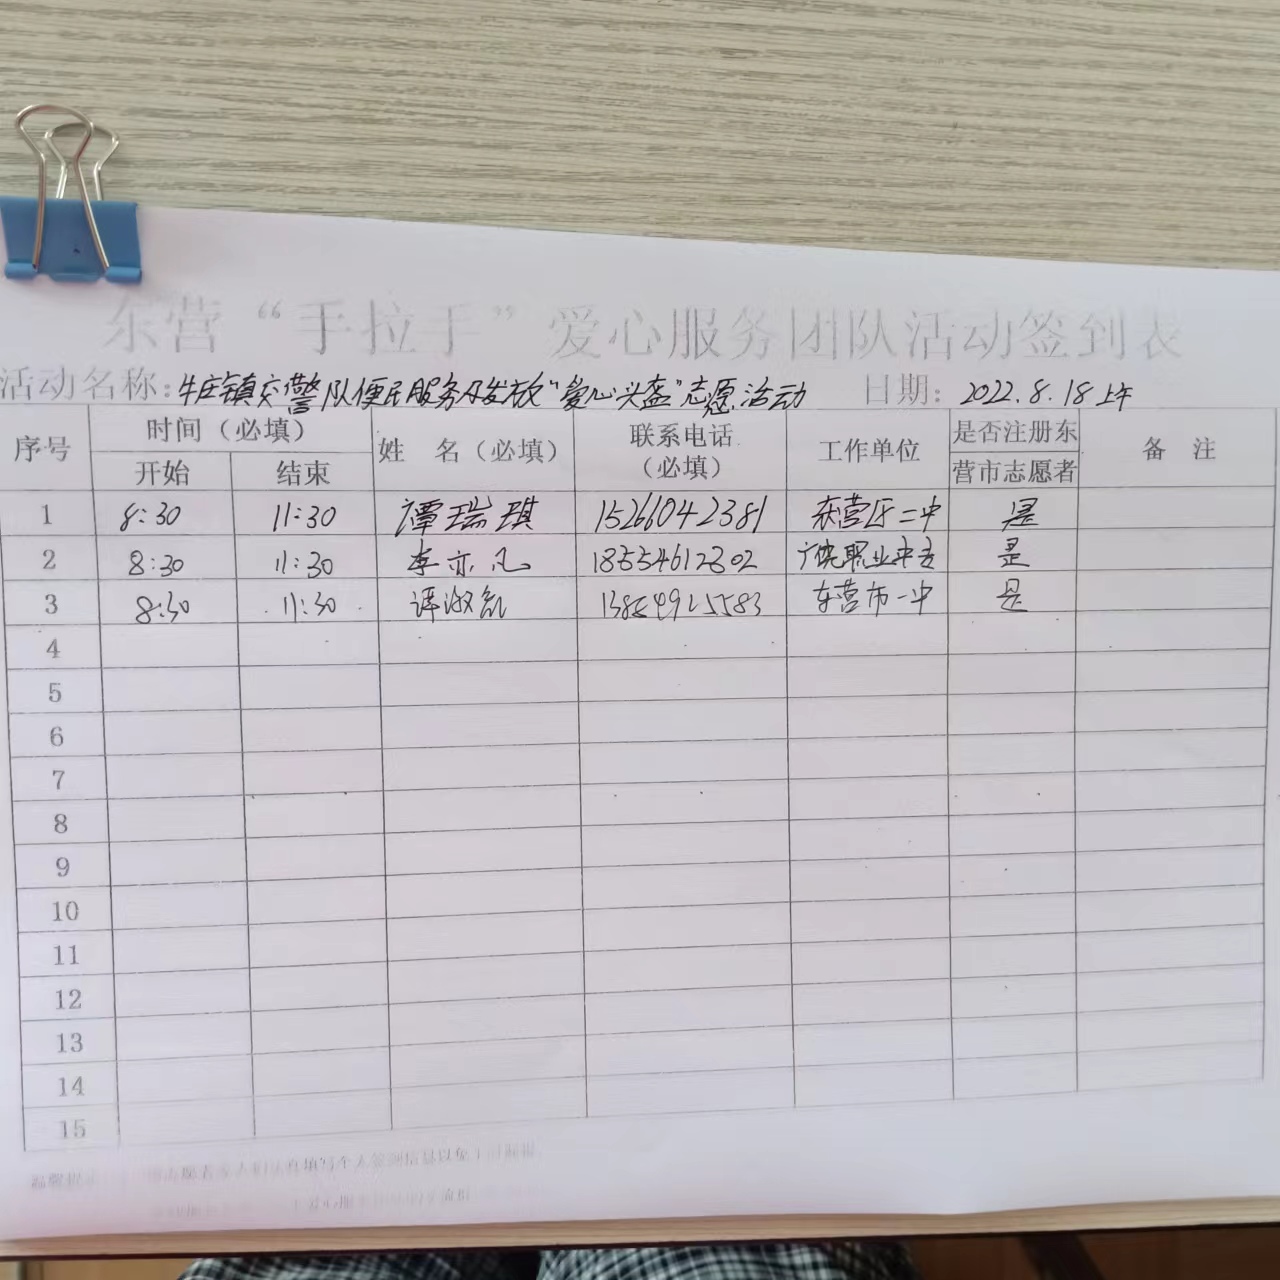 东营“手拉手”爱心服务团队活动签到表
活动名称：牛庄镇交警队便民服务及发放“爱心头盔”志愿活动 日期：2022.8.18上午
序号 时间（必填） 姓 名（必填） 联系电话（必填） 工作单位 是否注册东营市志愿者 备 注
开始 结束
1 8:30 11:30 谭瑞琪 15266042381 东营区二中 是
2 8:30 11:30 李亦凡 18554612302 广饶职业中专 是
3 8:30 11:30 谭淑 东营市一中 是
4
5
6
7
8
9
10
11
12
13
14
15
填写个人签到信息以免